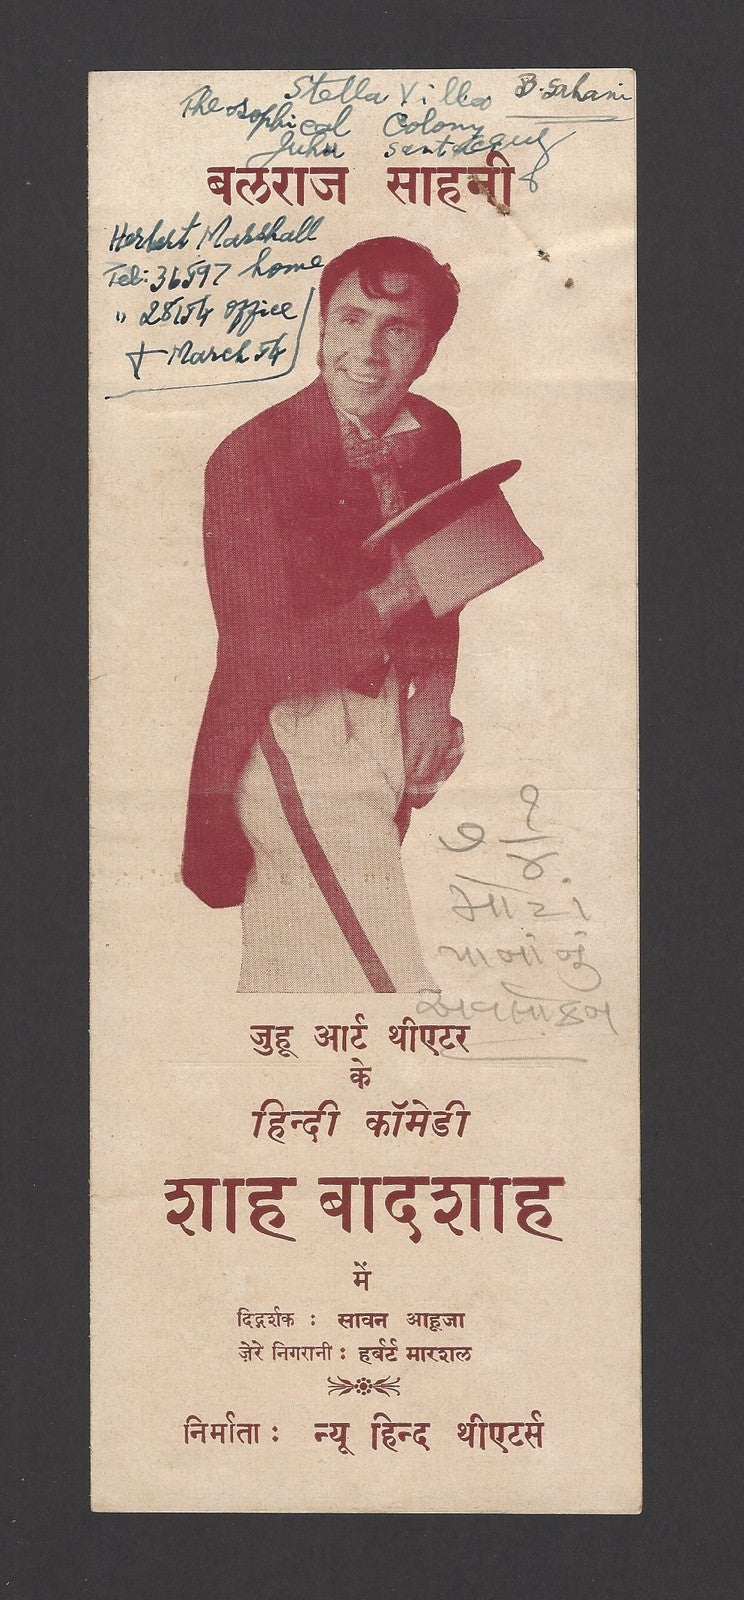 Stella Villa B. Sahani
Theosophical Colony
Juhu Santacruz
बलराज साहनी
Herbert Marshall
Tel: 36597 home
" 28154 office
March 54
जुहू आर्ट थीएटर
के
हिन्दी कॉमेडी
शाह बादशाह
में
दिग्दर्शक : सावन आहूजा
ज़ेरे निगरानी : हर्बर्ट मारशल
निर्माता : न्यू हिन्द थीएटर्स